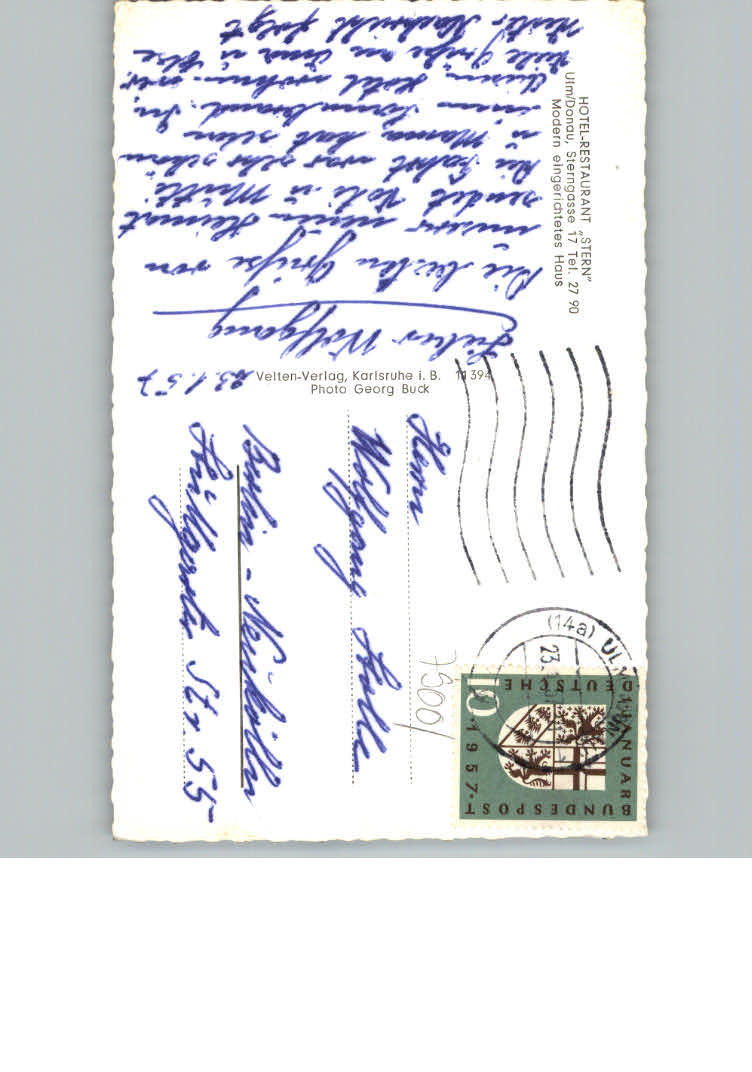 HOTEL-RESTAURANT „STERN"
Ulm/Donau, Sterngasse 17 Tel. 27 90
Modern eingerichtetes Haus
23.1.57
Lieber Wolfgang
Die besten Grüße von
unserer neuen Heimat
sendet Vati u. Mutti
Die Fahrt war sehr schön
u. Mama hat schon
einen Sonnenbrand. In
diesem Hotel wohnen wir
Viele Grüße an Oma u.
Nachricht folgt
Velten-Verlag, Karlsruhe i. B. 11 394
Photo Georg Buck
Herrn
Wolfgang
Berlin - Neukölln
Str. 55
7500/
(14a) ULM
23.
DEUTSCHE
BUNDESPOST
10
1. JANUAR
1957